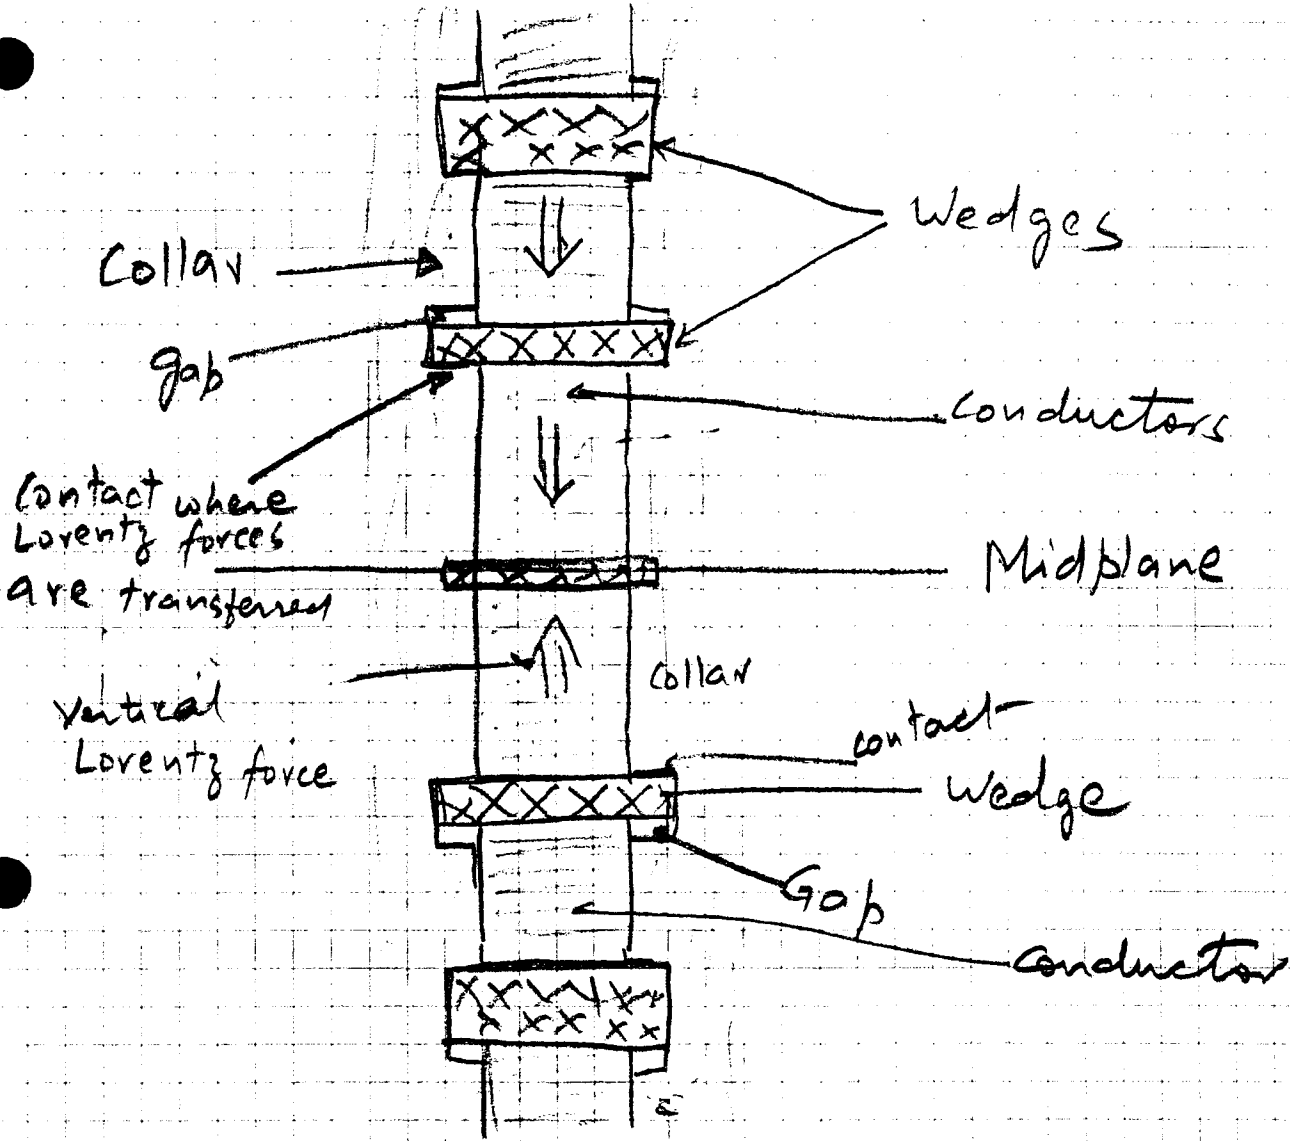 Wedges
Collar
gap
Conductors
Contact where
Lorentz forces
are transferred
Midplane
Collar
Vertical
Lorentz force
contact
Wedge
Gap
Conductor